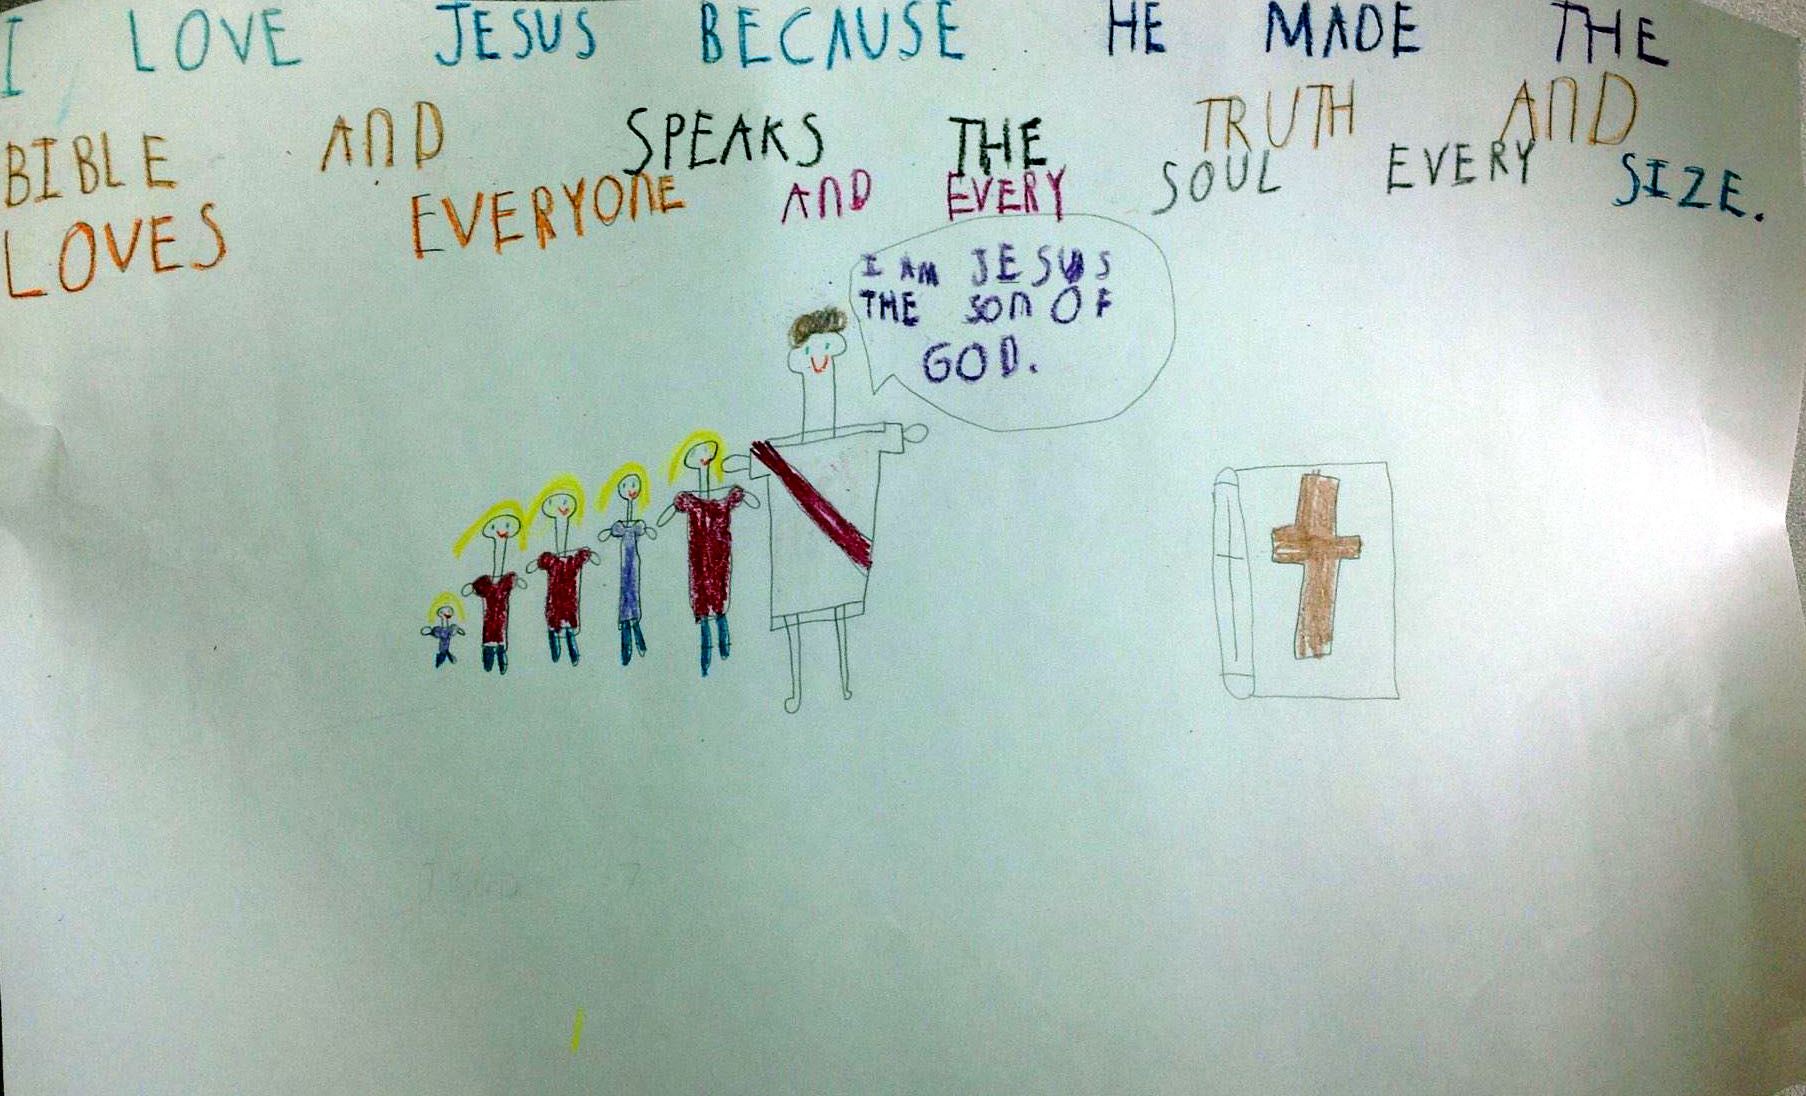 I LOVE JESUS BECAUSE HE MADE THE
BIBLE AND SPEAKS THE TRUTH AND
LOVES EVERYONE AND EVERY SOUL EVERY SIZE.
I AM JESUS
THE SON OF
GOD.